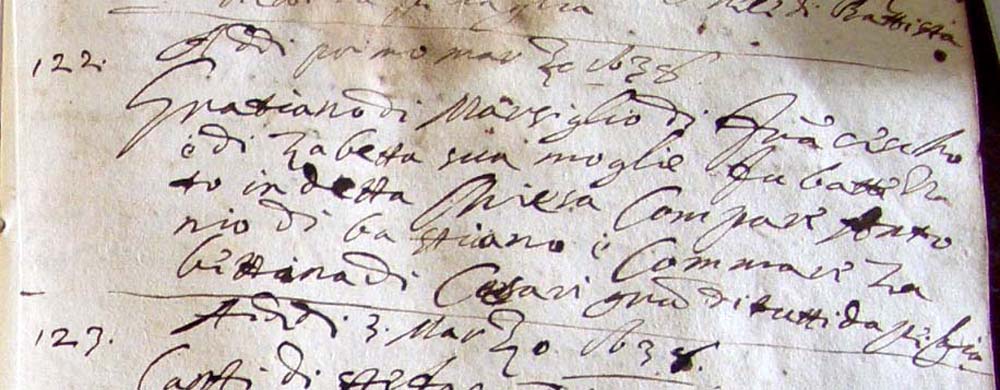 di Battista
122. Addi primo marzo 1638
Gratiano di Marsiglio di Frãcescho
è di Zabetta sua moglie fu batteza
to in detta Chiesa Compare Anto
nio di bastiano è Commare Za
bettina di Cesari tutti da
123. Addi 3. Marzo 1638.
di